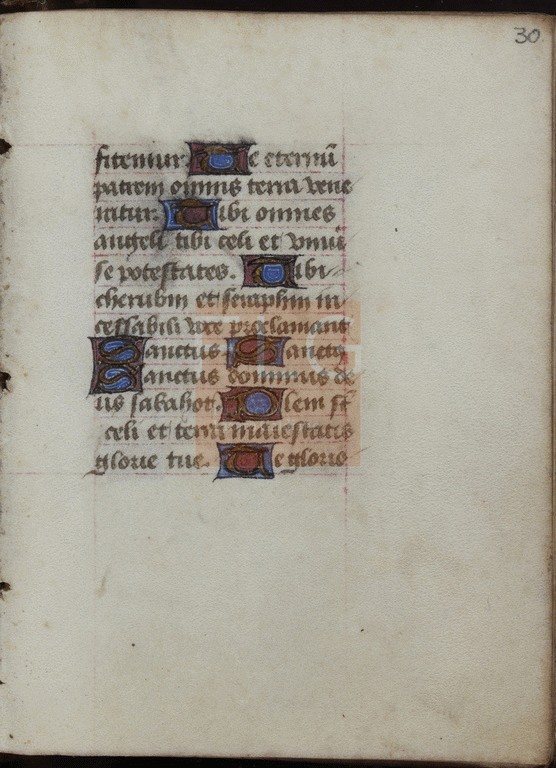 30
fitemur. Te eternū
patrem omnis terra vene
ratur. Tibi omnes
angeli tibi celi et vniū
se potestates. Tibi
cherubin et seraphin in
cessabili voce proclamant
Sanctus Sanctꝰ
Sanctus dominus de
us sabahot. Pleni st̄
celi et terra maiestatis
glorie tue. Te gloris